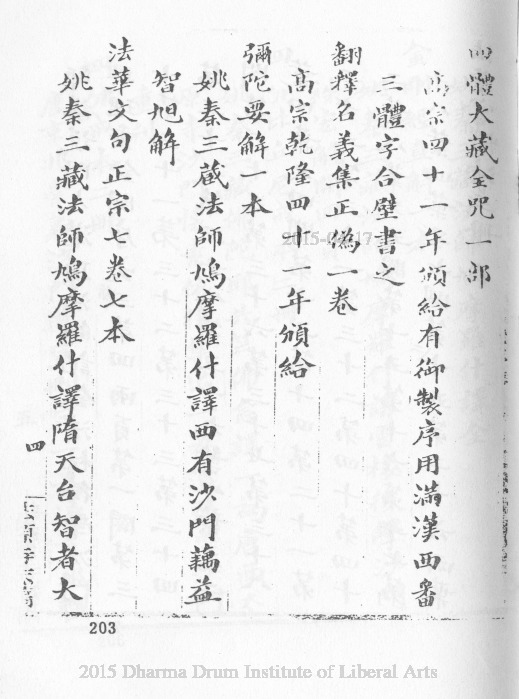 四體大藏全咒一部
高宗四十一年頒給有御製序用滿漢西番
三體字合壁書之
翻釋名義集正偽一卷
高宗乾隆四十一年頒給
彌陀要解一本
姚秦三藏法師鳩摩羅什譯西有沙門蕅益
智旭解
法華文句正宗七卷七本
姚秦三藏法師鳩摩羅什譯隋天台智者大
四
203
2015 Dharma Drum Institute of Liberal Arts